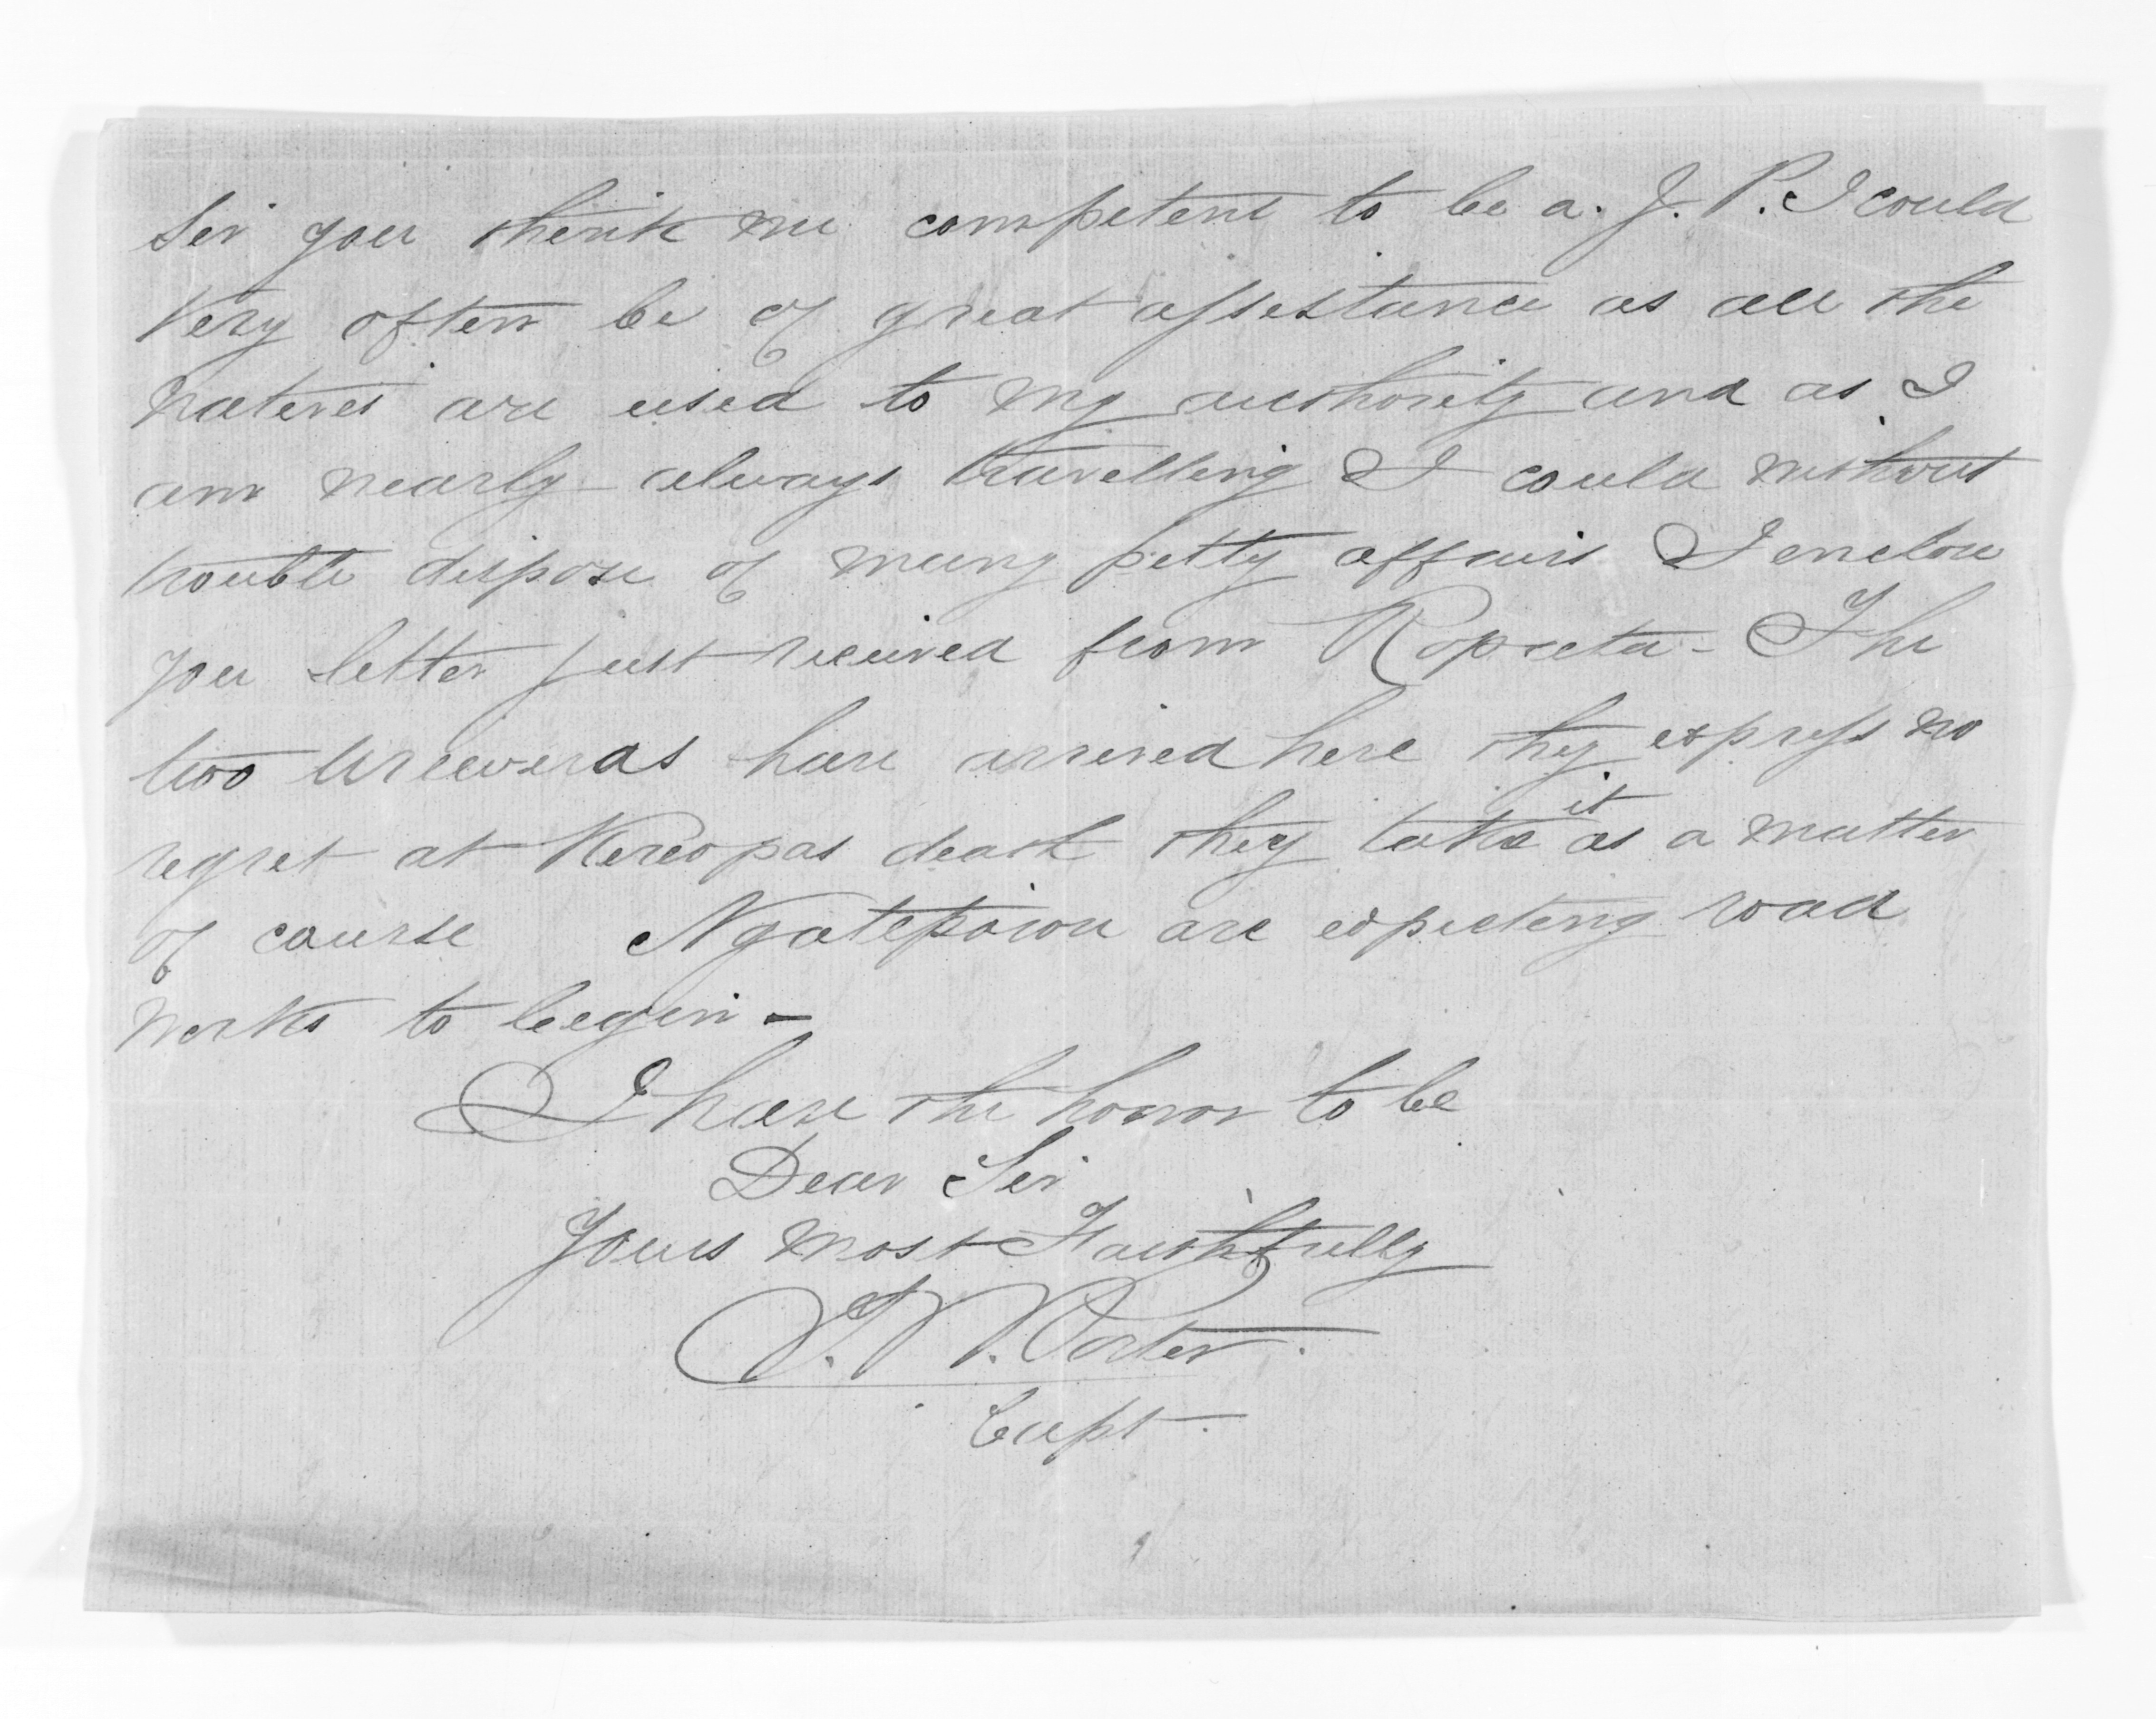 Sir you think me competent to be a. J. P. I could
Very often be of great assistance as all the
natives are used to my authority and as I
am nearly always travelling I could without
trouble dispose of many petty affairs I enclose
you letter just received from Ropata - The
two Ureweras have arrived here they express no
regret at Kereopas death they take it as a matter
of course Ngatiporou are expecting road
works to begin -
I have the honor to be
Dear Sir
Yours most Faithfully
T. W. Porter.
Capt.